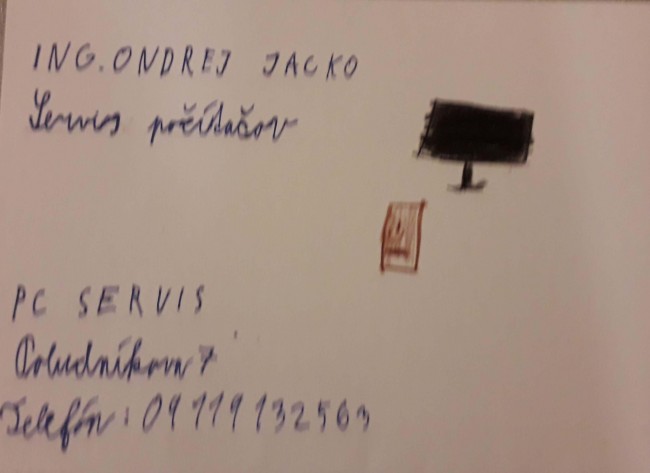 ING. ONDREJ JACKO
Servis počítačov
PC SERVIS
Poludníkova 7
Telefón: 09119132563